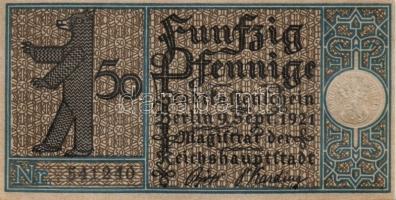 Fünfzig
Pfennige
50
Stadtkassenschein
Berlin 9. Sept. 1921
Magistrat der
Reichshauptstadt
Nr. 541240